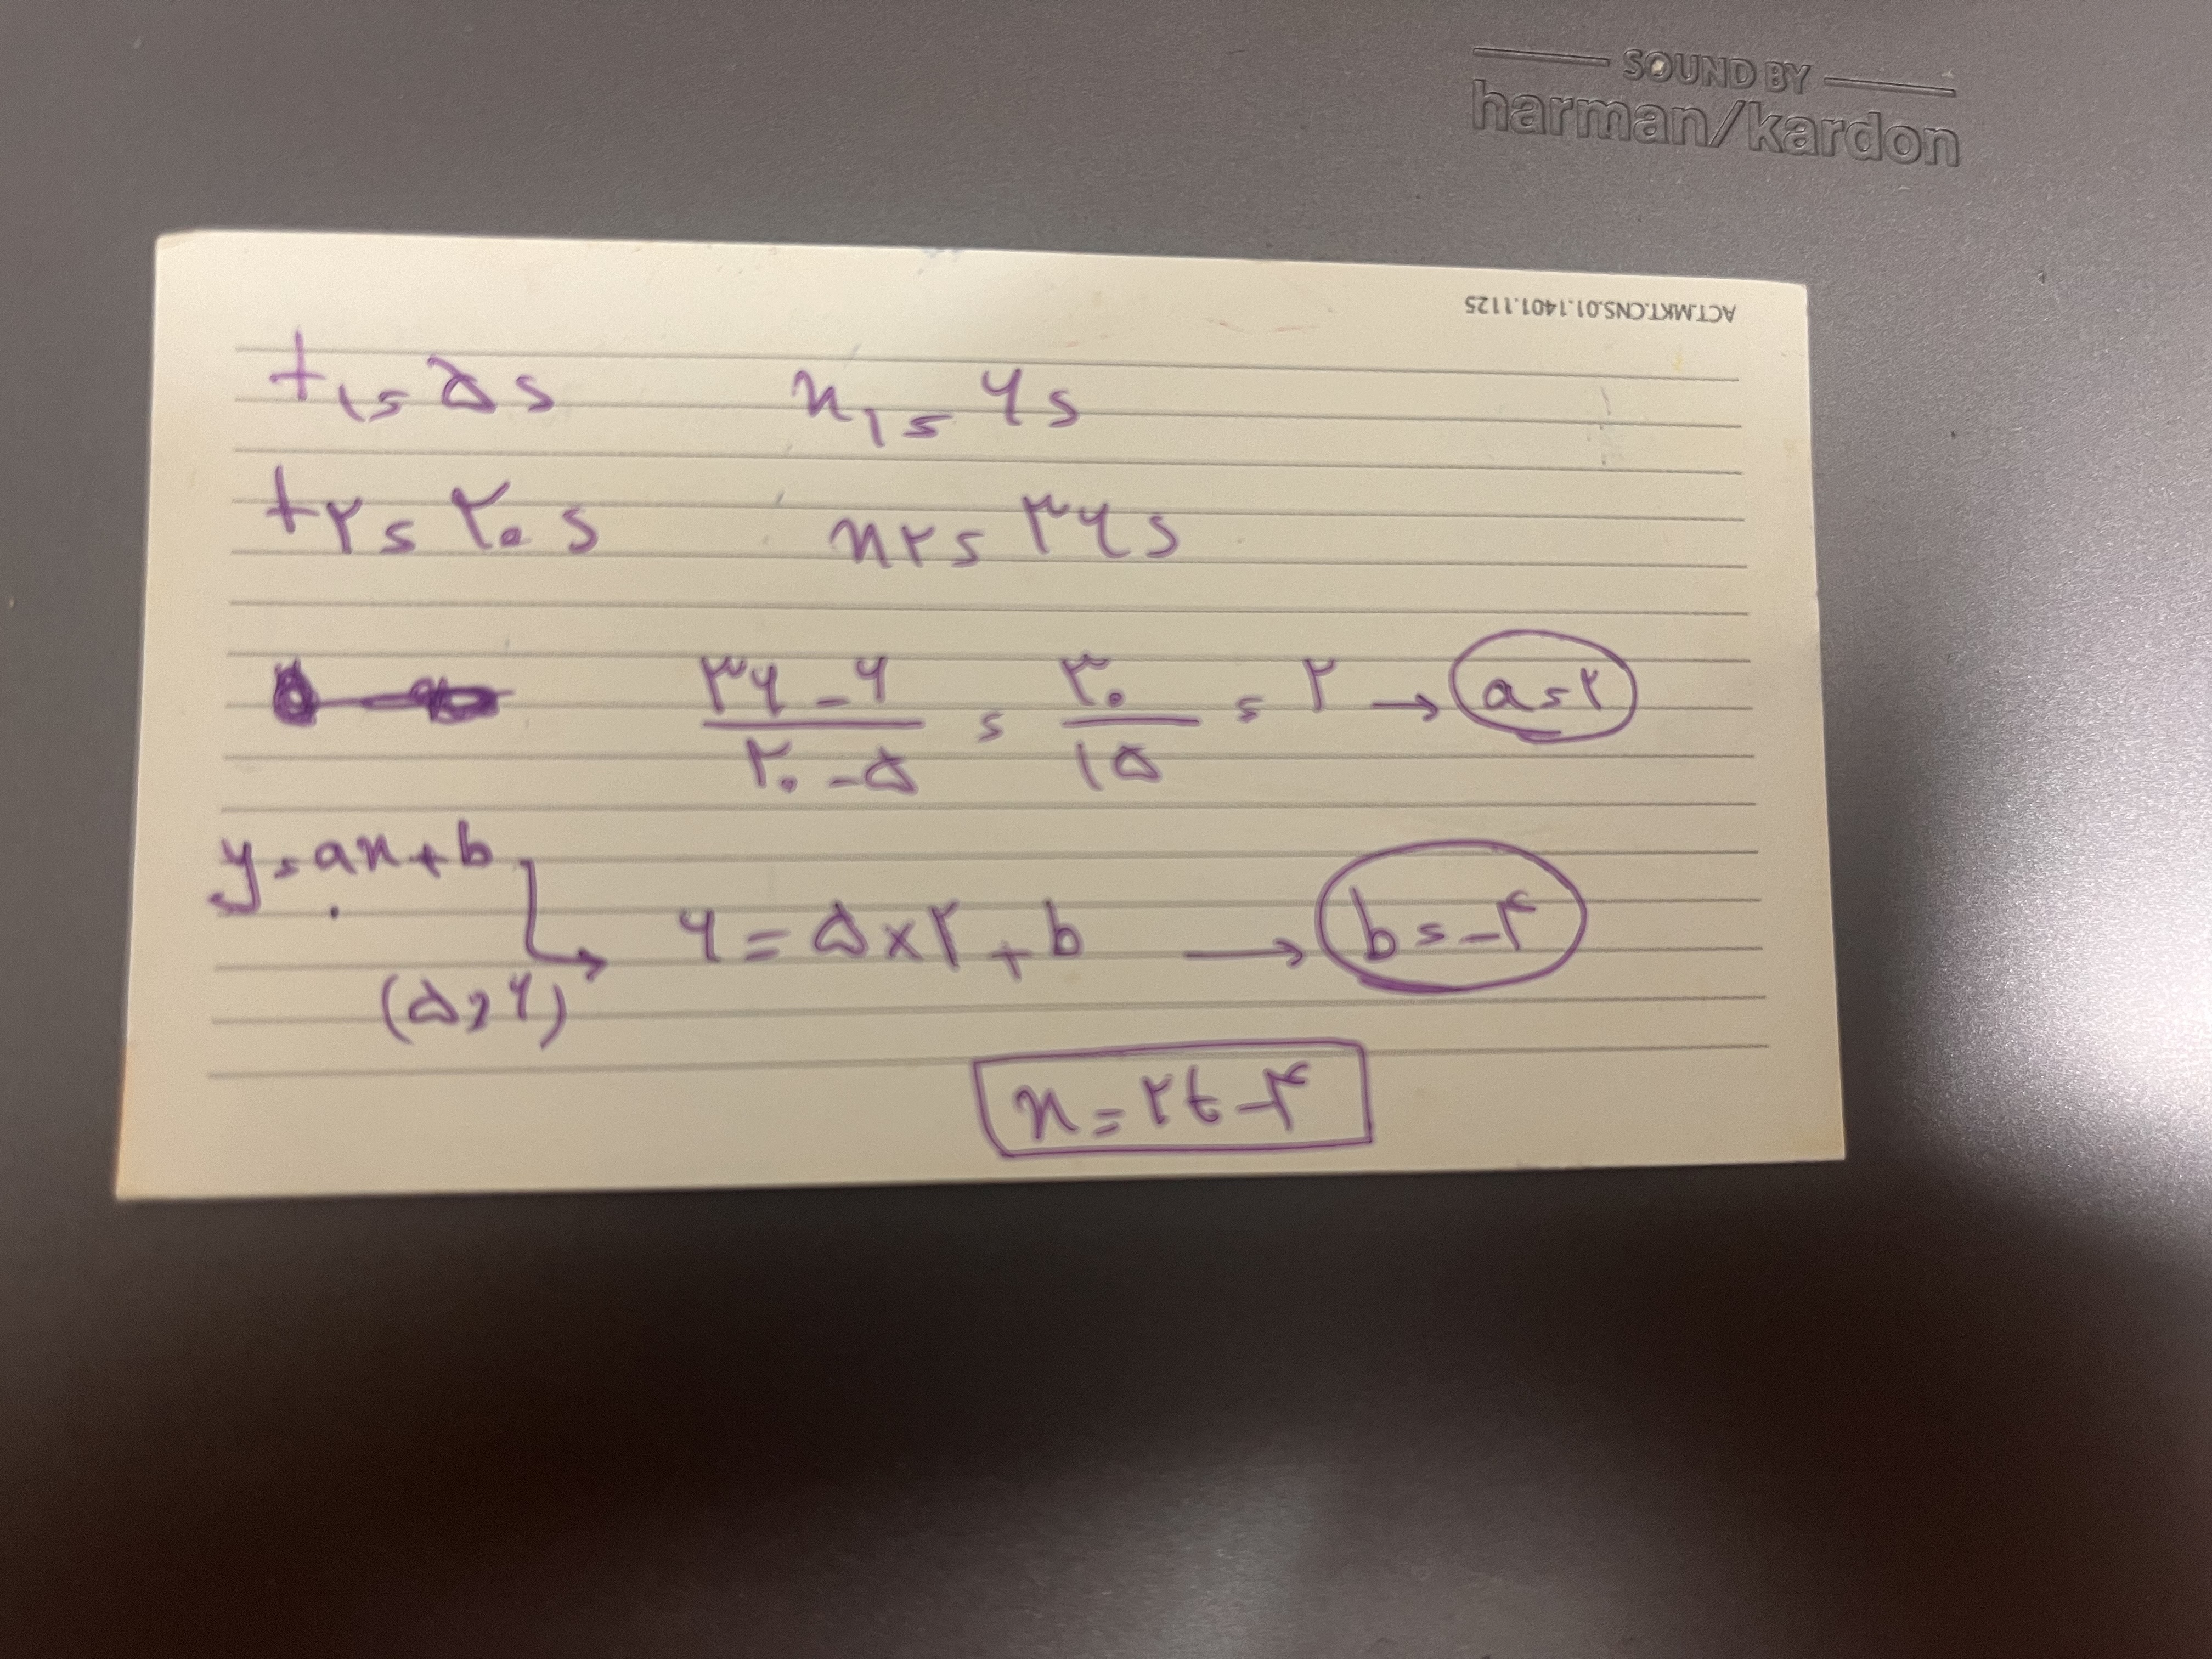 SOUND BY
harman/kardon
ACT.MKT.CNS.01.1401.1125
t₁ = ۵ s x₁ = ۶ s
t۲ = ۲۰ s x۲ = ۳۶ s
(۳۶ - ۶)/(۲۰ - ۵) = ۳۰/۱۵ = ۲ → a = ۲
y = ax + b
(۵ و ۶) ۶ = ۵ × ۲ + b → b = -۴
x = ۲t - ۴